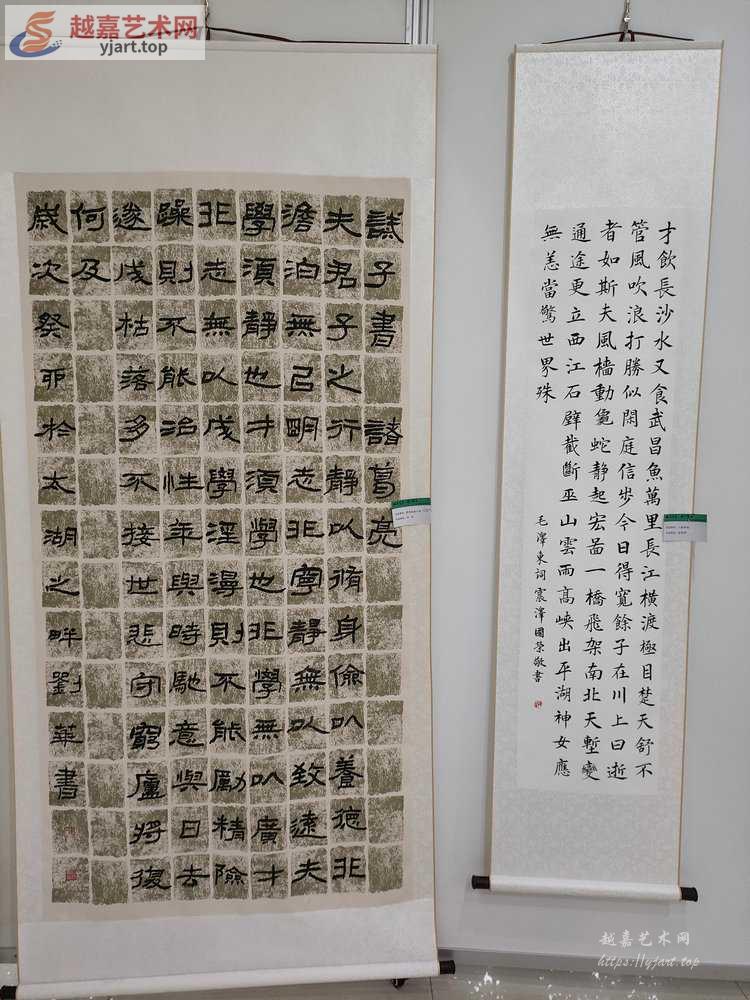 越嘉艺术网
yjart.top
誡子書 諸葛亮
夫君子之行靜以脩身儉以養德非
澹泊無以明志非寧靜無以致遠夫
學須靜也才須學也非學無以廣才
非志無以成學淫漫則不能勵精險
躁則不能治性年與時馳意與日去
遂成枯落多不接世悲守窮廬將復
何及
歲次癸卯於太湖之畔劉華書
才飲長沙水又食武昌魚萬里長江橫渡極目楚天舒不
管風吹浪打勝似閑庭信步今日得寬餘子在川上曰逝
者如斯夫風檣動龜蛇静起宏啚一橋飛架南北天塹變
通途更立西江石壁截斷巫山雲雨高峽出平湖神女應
無恙當驚世界殊
毛澤東詞震澤國榮敬書
越嘉艺术网
https://yjart.top